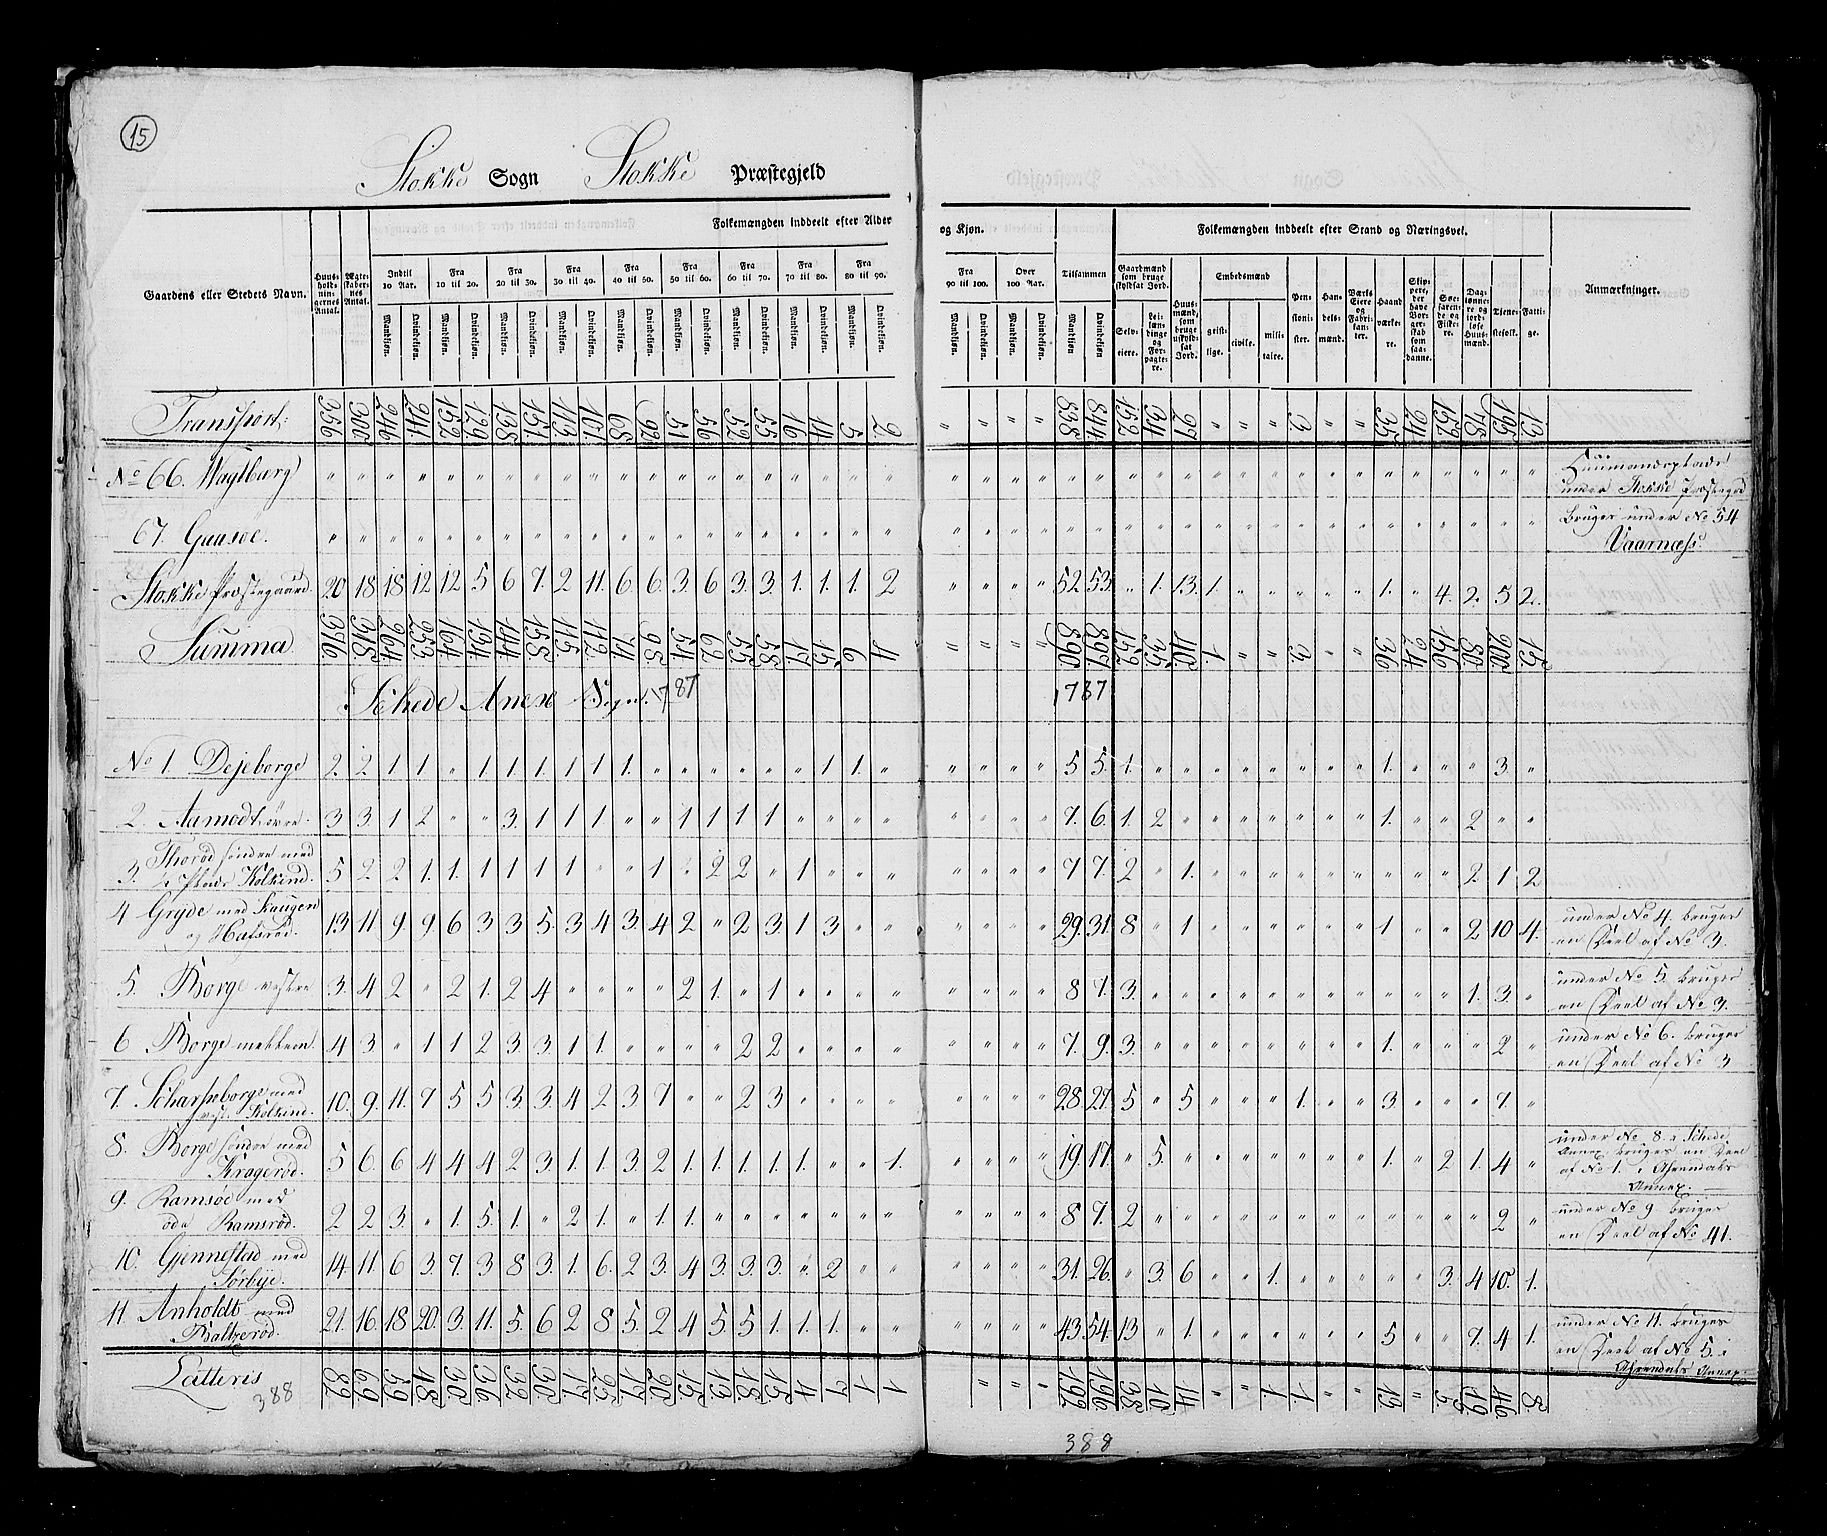 15
Stokke Sogn Stokke Præstegjeld
Folkemængden inddeelt efter Alder og Kjøn.
Folkemængden inddeelt efter Stand og Næringsvei.
Gaardens eller Stedets Navn. Huusholdningernes Antal. Ægteskabernes Antal. Indtil 10 Aar. Fra 10 til 20. Fra 20 til 30. Fra 30 til 40. Fra 40 til 50. Fra 50 til 60. Fra 60 til 70. Fra 70 til 80. Fra 80 til 90. Fra 90 til 100. Over 100 Aar. Tilsammen
Mandkiøn. Qvindekiøn. Mandkiøn. Qvindekiøn. Mandkiøn. Qvindekiøn. Mandkiøn. Qvindekiøn. Mandkiøn. Qvindekiøn. Mandkiøn. Qvindekiøn. Mandkiøn. Qvindekiøn. Mandkiøn. Qvindekiøn. Mandkiøn. Qvindekiøn. Mandkiøn. Qvindekiøn. Mandkiøn. Qvindekiøn. Mandkiøn Qvindekiøn
Gaardmænd som bruge skyldsat Jord. Selveiere. Leilændinge og Forpagtere. Huusmænd, som bruge uskyldsat Jord. Embedsmænd geistlige. civile. militaire. Pensionister. Handelsmænd. Værks Eiere og Fabrikanter. Haandværkere. Skippere, der have Borgerskab som saadanne. Søefarende og Fiskere. Daglønnere og jordløse Huusmænd. Tjenestefolk. Fattige. Anmærkninger.
Transport: 356 300 246 241 152 129 138 151 113 101 68 92 51 56 52 55 16 14 5 2 " " " " 838 844 152 34 27 " " " 3 " " 35 24 152 78 195 13
No 66. Wagtbærg " " " " " " " " " " " " " " " " " " " " " " " " " " " " " " " " " " " " " " " " " Huusmandsplads under Stokke Præstegd
67. Gaasøe. " " " " " " " " " " " " " " " " " " " " " " " " " " " " " " " " " " " " " " " " " Bruges under No 54 Vaarnæss.
Stokke Præstegaard. 20 18 18 12 12 5 6 7. 2 11. 6. 6. 3. 6 3. 3. 1. 1. 1. 2 " " " " 52. 53. " 1. 13. 1. " " " " " 1. " 4. 2. 5 2.
Summa 376 318 264 253 164 134 144 158 115 112 74 98 54 62 55 58 17 15 6 4 " " " " 890 897 152 35 40 1. " " 3. " " 36 24 156 80 200 15
Schede Anex Sogn. 1787 1787
No 1. Dejeborge 2. 2 1 1 " 1. 1. 1. 1 1 1. " " " " " " 1 1. " " " " " 5 5. 1. " " " " " " " " 1. " " " 3. "
2. Aamodt øvre. 3 3. 1 2 " " 3. 1 1 1 " " 1 1 1 1 " " " " " " " " 7. 6. 1. 2 " " " " " " " 1. " " 2 " "
3. Thorød søndre med ½ Plads Kolkind. 5 2 2 1. 1. 1 1 1 1 " " 1 " 2 2. " 1 " " " " " " " 7 7. 2 " 1. " " " " " " " " " 2. 1 2
4 Gryde med Skaugen og Hatsrød. 13 11 9. 9. 6 3 3 5. 3 4 3. 4 2 " 2 3. 1 3 " " " " " " 29. 31. 8 " 1 " " " " " " 1 " " 2 10 4. under No 4. bruges en Deel af No 3.
5. Borge vestre 3. 4 2 " 2 1. 2 4 " " " " 2 1. " 1 " " " " " " " " 8 7. 3. " " " " " " " " " " " 1. 3. " under No 5. bruges en Deel af No 3.
6 Borge mellem. 4 3. " 1 1 2 3. 3. 1 1. " " " " 2 2. " " " " " " " " 7. 9. 3. " " " " " " " " 1. " " " 2 " under No 6. bruges en Deel af No 3
7. Scharpeborge med vest. Kolkind. 10. 9. 11. 7 5 5 3. 3. 4 2 3. 7 " " 2 3 " " " " " " " " 28. 27. 5 " 5 " " " 1. " " 3. " " " 7. "
8. Borge søndre med Kragerød. 5 6. 6 4 4 4 2 3. 1. 1. 3. 2 1. 1. 1. 1. 1. " " 1. " " " " 19. 17. " 5. " " " " " " " 1. " 2 1. 4 " under No 8. i Schede Annex bruges en Deel af No 1. i Ahrendals Annex.
9. Ramsøe med øde Ramsrød. 2 2 3. " 1. 5. 1. " 2 1. " 1. 1. " " " " " " " " " " " 8 7. 2 " " " " " " " " " " " " 2 " under No 9 bruges en Deel af No 41.
10. Gjennestad med Sørbye. 14. 11. 6 3. 7. 3 8 3. 1. 6. 2 3. 4 3. 3. 3. " 2 " " " " " " 31. 26. " 3. 6 " " 1. " " " " " 3. 4 10. 1.
11. Anholdt med Baltzerød. 21. 16. 18 20. 3. 11. 5. 6 2 8 5. 2 4 5. 5 1. 1. 1. " " " " " " 43. 54. 13 " 1. " " " " " " 5 " " 7. 4 1. under No 11. bruges en Deel af No 5. i Ahrendals Annex.
Latteris 82 69 59 48 30 36 32 30 17 25 17 20 15 13 18 15 4 7 1 1 " " " " 192 196 38 10 14 " " 1. 1. " " 13 " 5. 19. 46. 8.
388
388